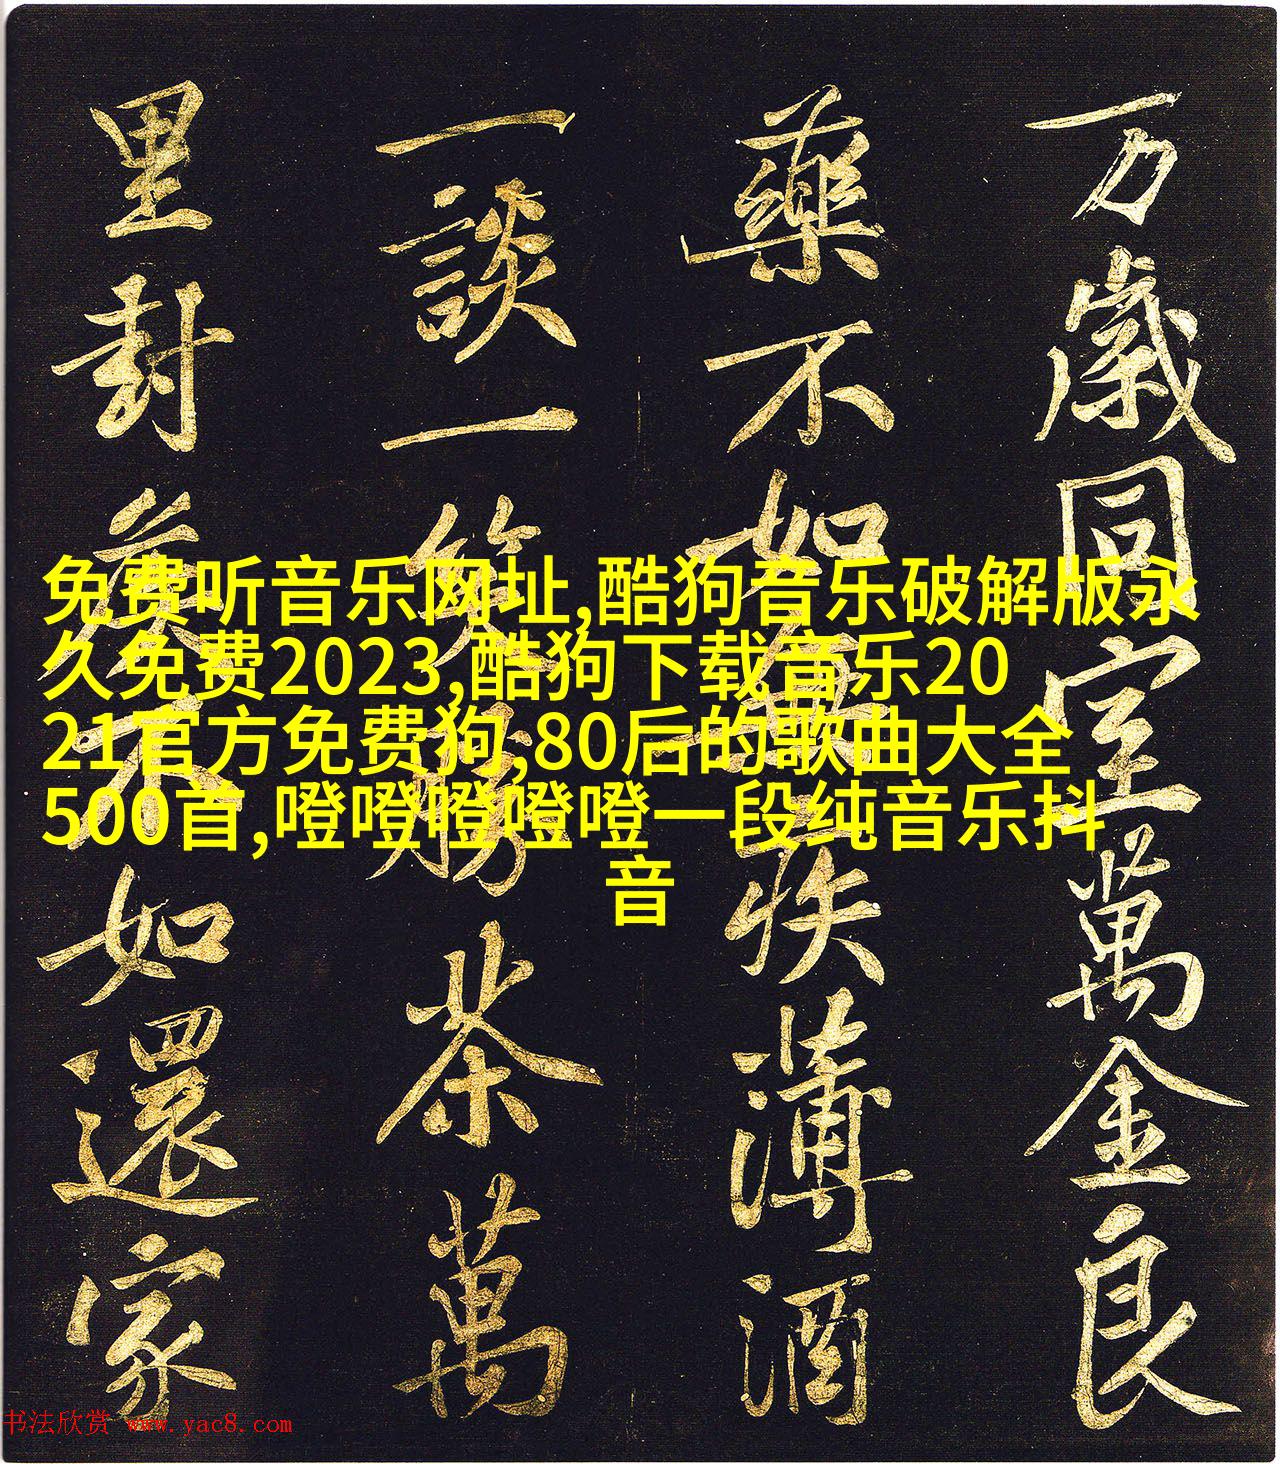 万歲同室萬金良
藥不如無疾薄酒
一談一笑勝茶萬
里封侯不如還家
免费听音乐网址,酷狗音乐破解版永
久免费2023,酷狗下载音乐20
21官方免费狗,80后的歌曲大全
500首,噔噔噔噔噔一段纯音乐抖
音
书法欣赏 www.yac8.com